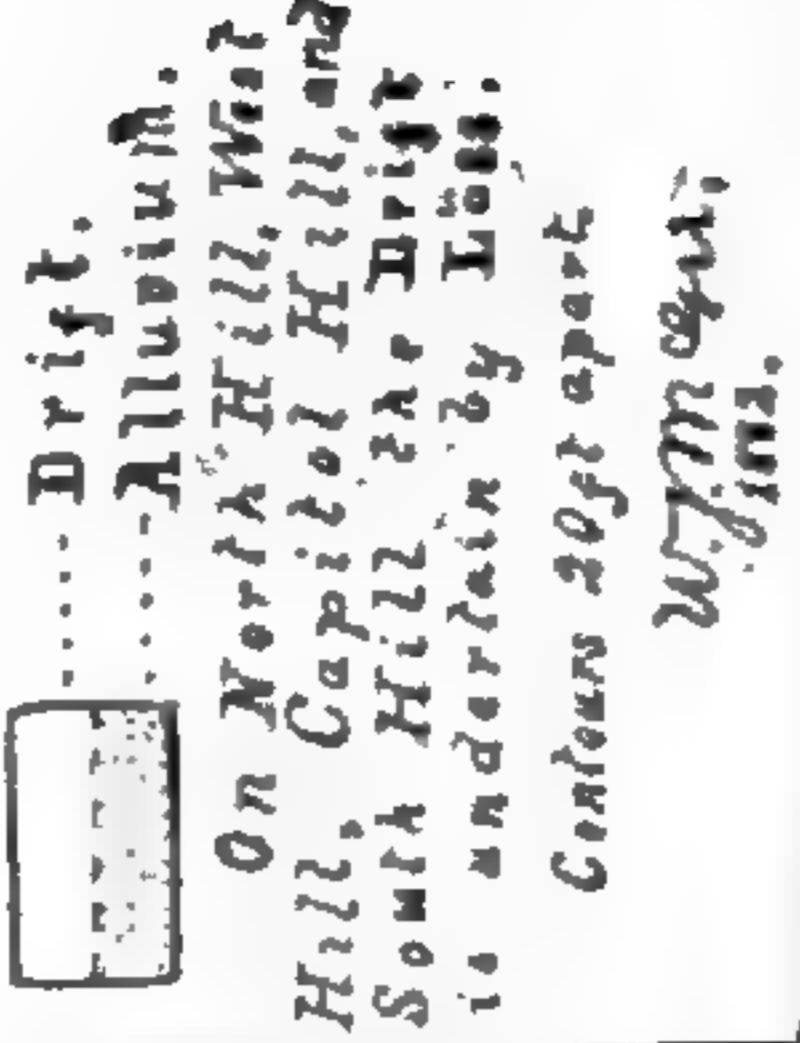 Drift.
Alluvium.
On North Hill, West
Hill, Capitol Hill, and
South Hill the Drift
is underlain by Löss.
Contours 20ft apart
W J McGee,
ins.